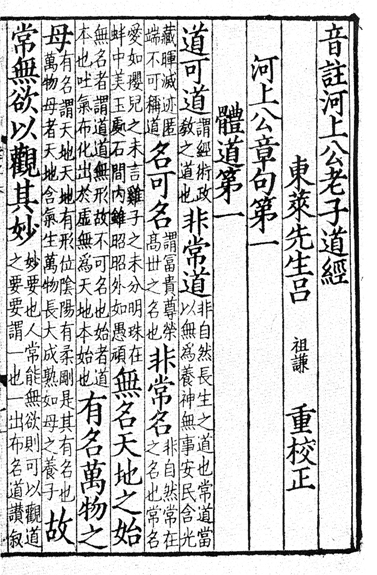 音註河上公老子道經
東萊先生呂祖謙重校正
河上公章句第一
體道第一
道可道謂經術政教之道也非常道非自然長生之道也常道當以無爲養神無事安民含光
藏暉滅迹匿端不可稱道名可名謂富貴尊榮高世之名也非常名非自然常在之名也常名
愛如嬰兒之未言雞子之未分明珠在蚌中美玉處石間內雖昭昭外如愚頑無名天地之始
無名者謂道道無形故不可名也始者道本也吐氣布化出於虛無爲天地本始也有名萬物之
母有名謂天地天地有形位陰陽有柔剛是其有名也萬物母者天地含氣生萬物長大成熟如母之養子故
常無欲以觀其妙妙要也人常能無欲則可以觀道之要要謂也出布名道讚叙